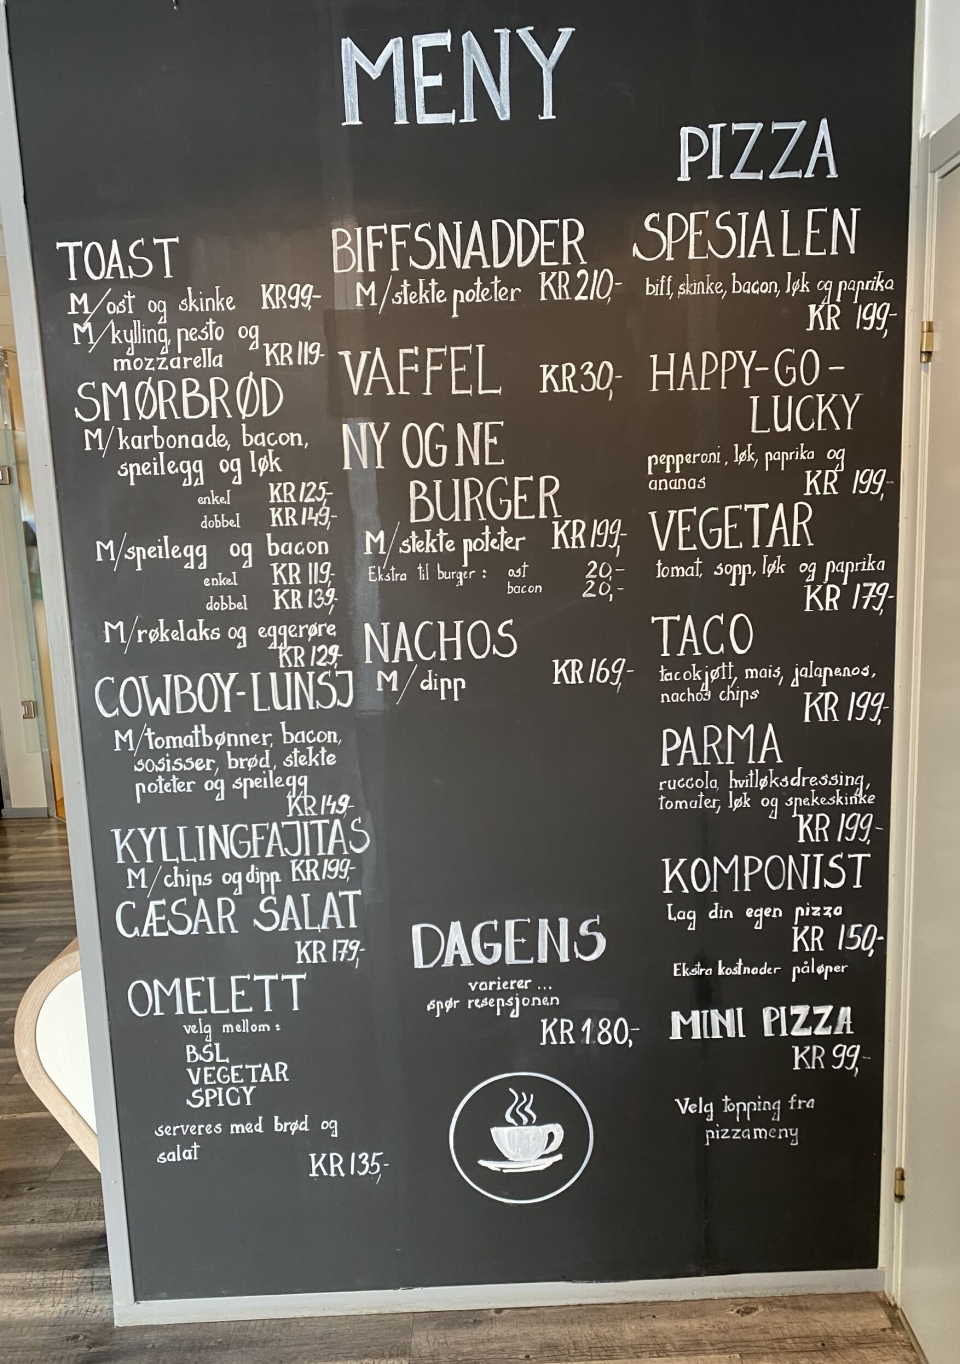 MENY
TOAST
M/ost og skinke KR 99,-
M/kylling, pesto og
mozzarella KR 119-
SMØRBRØD
M/karbonade, bacon,
speilegg og løk
enkel KR 125,-
dobbel KR 149,-
M/speilegg og bacon
enkel KR 119,-
dobbel KR 139,-
M/røkelaks og eggerøre
KR 129,-
COWBOY-LUNSJ
M/tomatbønner, bacon,
sosisser, brød, stekte
poteter og speilegg
KR 149,-
KYLLINGFAJITAS
M/chips og dipp KR 199,-
CÆSAR SALAT
KR 179,-
OMELETT
velg mellom:
BSL
VEGETAR
SPICY
serveres med brød og
salat
KR 135,-
BIFFSNADDER
M/stekte poteter KR 210,-
VAFFEL KR 30,-
NY OG NE
BURGER
M/stekte poteter KR 199,-
Ekstra til burger: ost 20,-
bacon 20,-
NACHOS
M/dipp KR 169,-
DAGENS
varierer ...
spør resepsjonen
KR 180,-
PIZZA
SPESIALEN
biff, skinke, bacon, løk og paprika
KR 199,-
HAPPY-GO-
LUCKY
pepperoni, løk, paprika og
ananas KR 199,-
VEGETAR
tomat, sopp, løk og paprika
KR 179,-
TACO
tacokjøtt, mais, jalapenos,
nachos chips
KR 199,-
PARMA
ruccola, hvitløksdressing,
tomater, løk og spekeskinke
KR 199,-
KOMPONIST
Lag din egen pizza
KR 150,-
Ekstra kostnader påløper
MINI PIZZA
KR 99,-
Velg topping fra
pizzameny